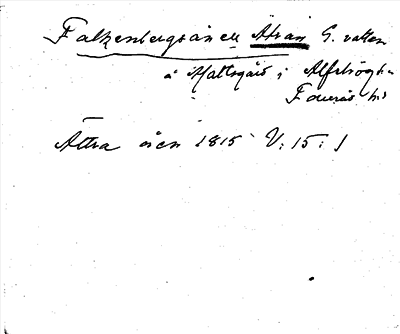 Falkenbergsån el. Ätran G. vatten
å Mattsgård i Alfshögs
Faurås hd
Ättra åen 1815 V: 15: 1